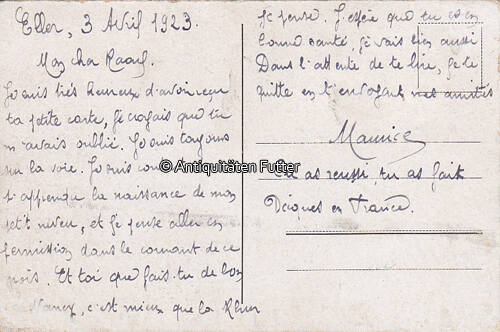 Eller, 3 Avril 1923.
Mon cher Raoul.
Je suis très heureux d'avoir reçu
ta petite carte, je croyais que tu
m'avais oublié. Je suis toujours
sur la voie. Je suis
d'apprendre la naissance de mon
petit neveu, et je pense aller en
permission dans le courant de ce
mois. Et toi que fais-tu de bon
Nancy, c'est mieux que la Rhur
je pense. J'espère que tu es en
bonne santé, je vais bien aussi
Dans l'attente de te lire, je te
quitte en t'envoyant mes amitiés
Maurice
Tu as réussi, tu as fait
Pâques en France.
© Antiquitäten Futter